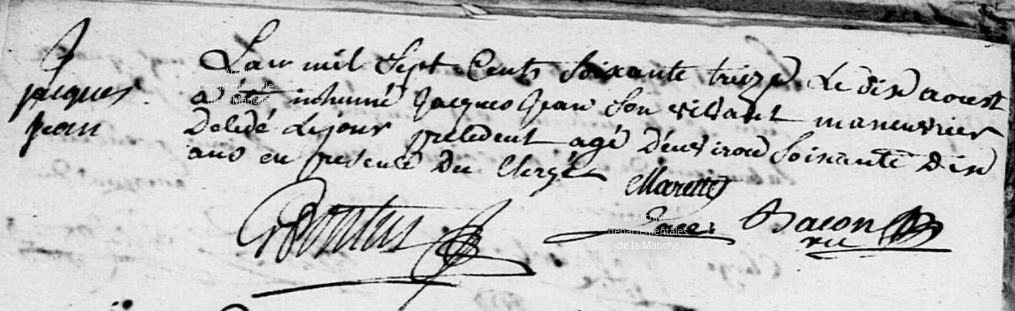 jacques
jean
Lan mil Sept Cents Soixante treize Le dix aoust
a eté inhumé Jacques Jean Son vivant maneuvrier
Décédé Le jour précédent agé d'environ Soixante dix
ans en presence Du Clergé
Bacon
Archives
départementales
de la Manche
Archives
départementales
de la Manche